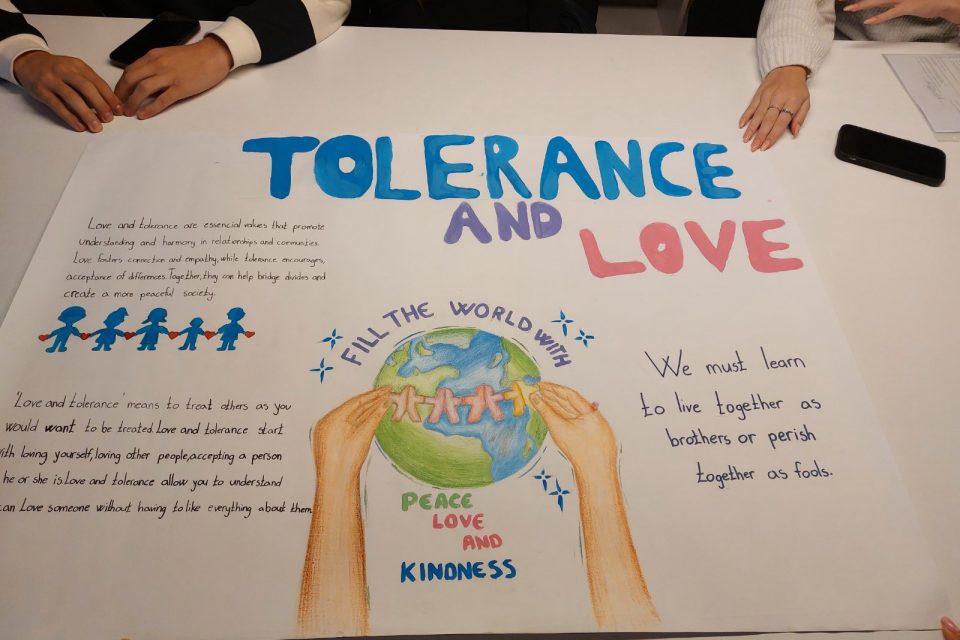 TOLERANCE
AND
LOVE
Love and tolerance are essencial values that promote
understanding and harmony in relationships and communities.
Love fosters connection and empathy, while tolerance encourages,
acceptance of differences. Together, they can help bridge divides and
create a more peaceful society.
'Love and tolerance' means to treat others as you
would want to be treated. Love and tolerance start
with loving yourself, loving other people, accepting a person
he or she is. Love and tolerance allow you to understand
can Love someone without having to like everything about them
FILL THE WORLD WITH
PEACE
LOVE
AND
KINDNESS
We must learn
to live together as
brothers or perish
together as fools.